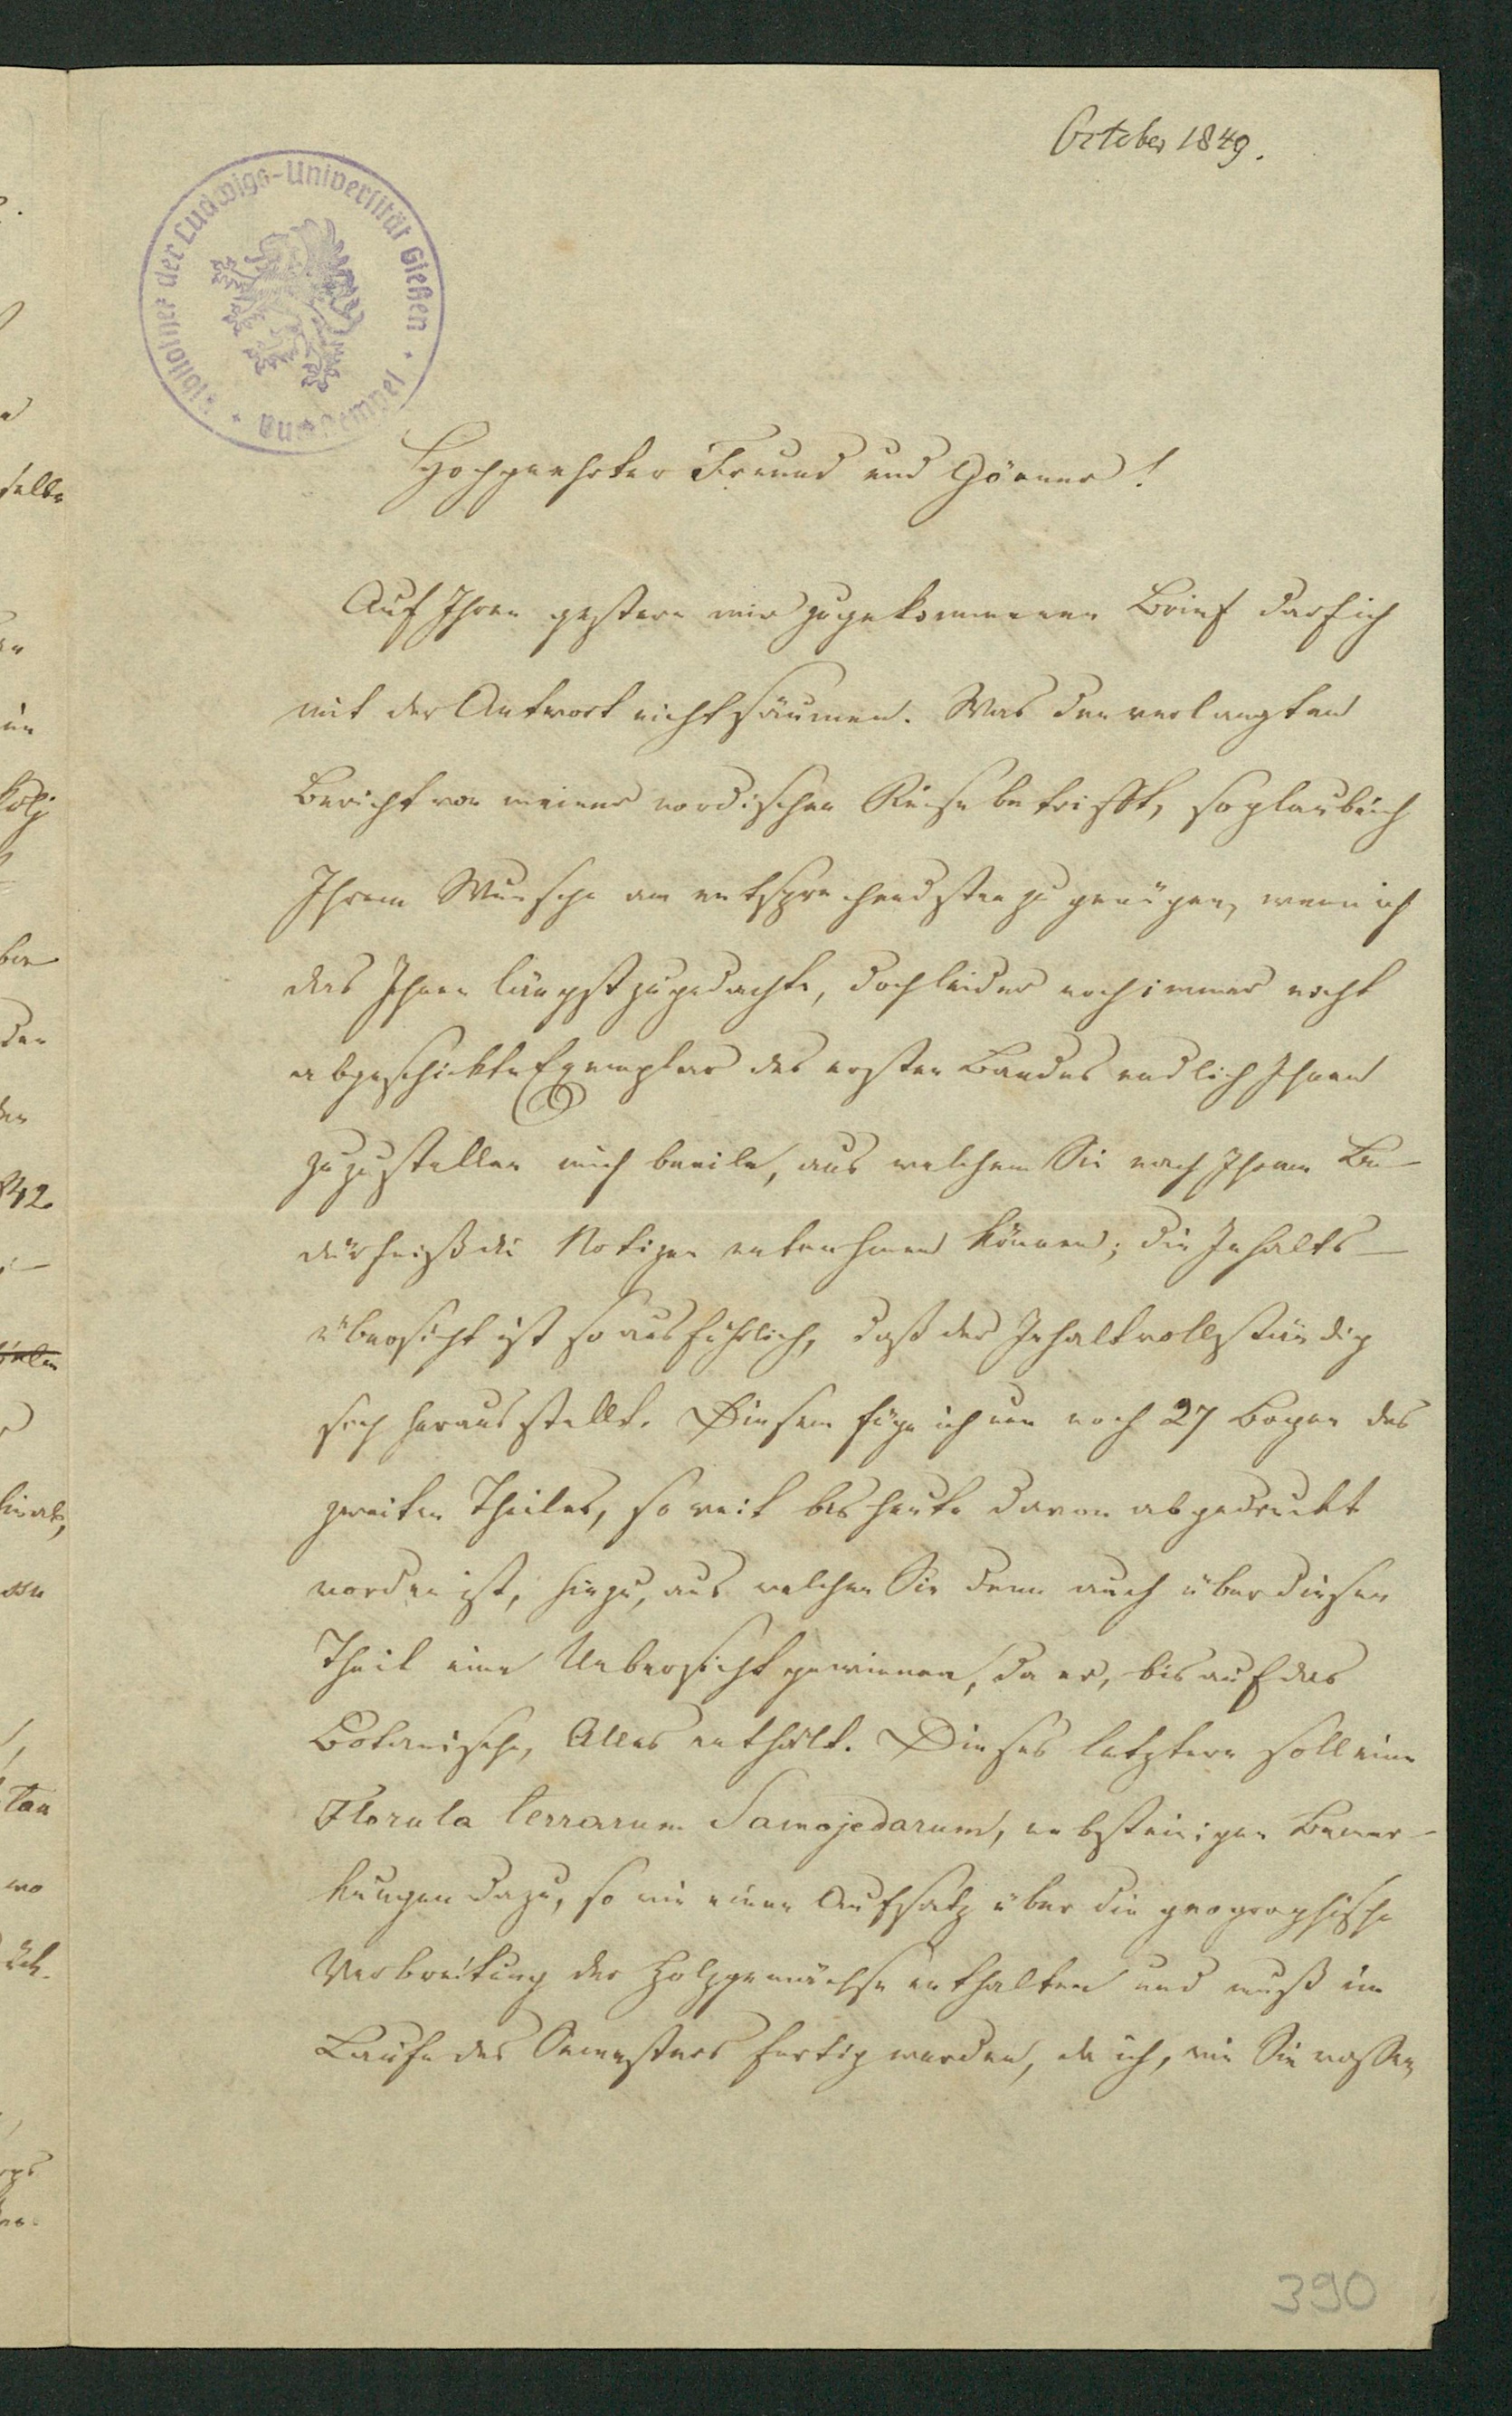 October 1849.
Bibliothek der Ludwigs-Universität Gießen
Hochgeehrter Freund und Gönner!
Auf Ihren gestern mir zugekommenen Brief darf ich
mit der Antwort nicht säumen. Was den verlangten
Bericht von meiner nordischen Reise betrifft, so glaub ich
Ihrem Wunsche am entsprechendsten zu genügen, wenn ich
das Ihnen längst zugedachte, doch leider noch immer nicht
abgeschickte Exemplar des ersten Bandes endlich Ihnen
zuzustellen mich beeile, aus welchem Sie nach Ihrem Be-
dürfniß die Notizen entnehmen können; die Inhalts-
übersicht ist so ausführlich, daß der Inhalt vollständig
sich herausstellt. Diesem füge ich nun noch 27 Bogen des
zweiten Theiles, so weit bis heute davon abgedruckt
worden ist, hinzu, aus welchen Sie denn auch über diesen
Theil eine Uebersicht gewinnen, da er, bis auf das
Botanische, Alles enthält. Dieses letztere soll eine
Florula terrarum Samojedarum, nebst einigen Bemer-
kungen dazu, so wie einen Aufsatz über die geographische
Verbreitung der Holzgewächse enthalten und muß im
Laufe des Semesters fertig werden, da ich, wie Sie wissen,
390